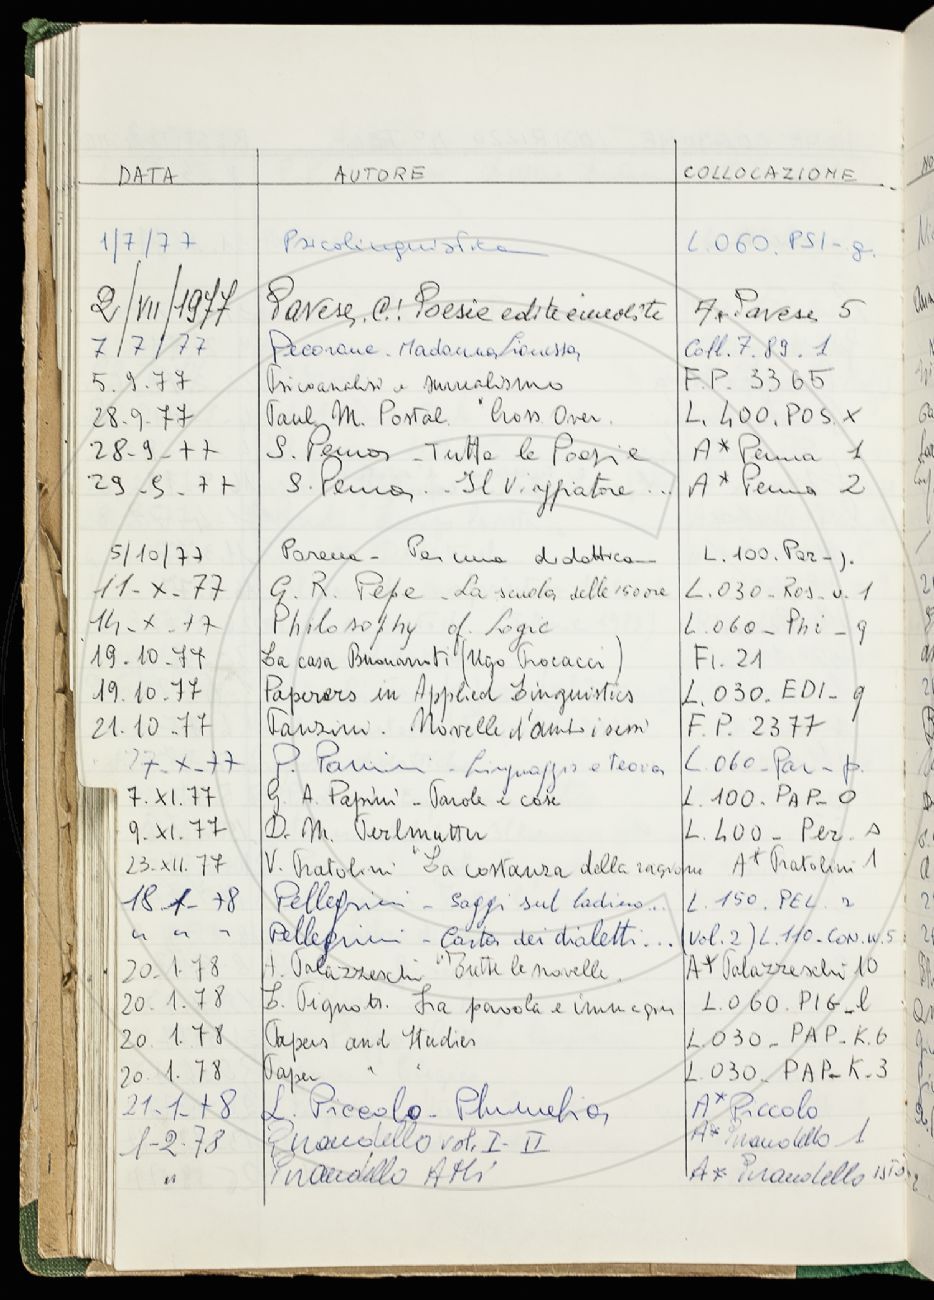 DATA AUTORE COLLOCAZIONE
1/7/77 Psicolinguistica L.060.PSI-g.
2/VII/1977 Pavese, C.: Poesie edite e inedite A* Pavese 5
7/7/77 Pecorane. Madonna Lionessa Coll.7.89.1
5.9.77 Psicoanalisi e surrealismo F.P. 3365
28.9.77 Paul M. Postal "Cross Over. L. 400.POS.X
28-9-77 S. Penna - Tutte le Poesie A* Penna 1
29-9-77 S. Penna - Il Viaggiatore ... A* Penna 2
5/10/77 Parena - Per una didattica L.100.Par-
11-X-77 G. R. Pepe - La scuola delle L.030-Ros-v.1
14-X-77 Philosophy of Logic L.060-Phi-g
19.10.77 La casa Buonarroti (Ugo Procacci) Fi. 21
19.10.77 Paperers in Applied Linguistics L.030-EDI-g
21.10.77 Panzini. Novelle d'ambi i sessi F.P. 2377
27-X-77 Parisi - Linguaggio e teoria L.060-Par-p.
7.XI.77 G. A. Papini - Parole e cose L.100-PAP-O
9.XI.77 D. M. Perlmutter L.400-Per.s
23.XII.77 V. Pratolini "La costanza della ragione A* Pratolini 1
18-1-78 Pellegrini - Saggi sul ladino... L.150.PEL.
" " " Pellegrini - Carta dei dialetti... (Vol.2) L.110-Con.w.5
20.1.78 A. Palazzeschi "Tutte le novelle. A* Palazzeschi 10
20.1.78 L. Pignotti. Fra parola e immagine L.060.PIG-l
20.1.78 Papers and Studies L.030-PAP-K.6
20.1.78 Paper " " L.030-PAP-K-3
21-1-78 L. Piccolo - Plumelia A* Piccolo
1-2-78 Pirandello vol. I-II A* Pirandello 1
" Pirandello Atti A* Pirandello